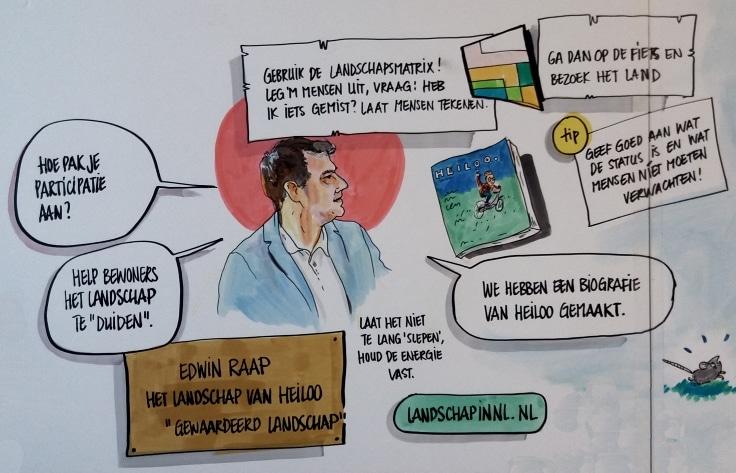 GEBRUIK DE LANDSCHAPSMATRIX!
LEG 'M MENSEN UIT, VRAAG: HEB
IK IETS GEMIST? LAAT MENSEN TEKENEN.
GA DAN OP DE FIETS EN
BEZOEK HET LAND
tip
GEEF GOED AAN WAT
DE STATUS IS EN WAT
MENSEN NIET MOETEN
VERWACHTEN!
HOE PAK JE
PARTICIPATIE
AAN?
HEILOO.
HELP BEWONERS
HET LANDSCHAP
TE "DUIDEN".
WE HEBBEN EEN BIOGRAFIE
VAN HEILOO GEMAAKT.
LAAT HET NIET
TE LANG 'SLEPEN',
HOUD DE ENERGIE
VAST.
EDWIN RAAP
HET LANDSCHAP VAN HEILOO
"GEWAARDEERD LANDSCHAP"
LANDSCHAPINNL.NL